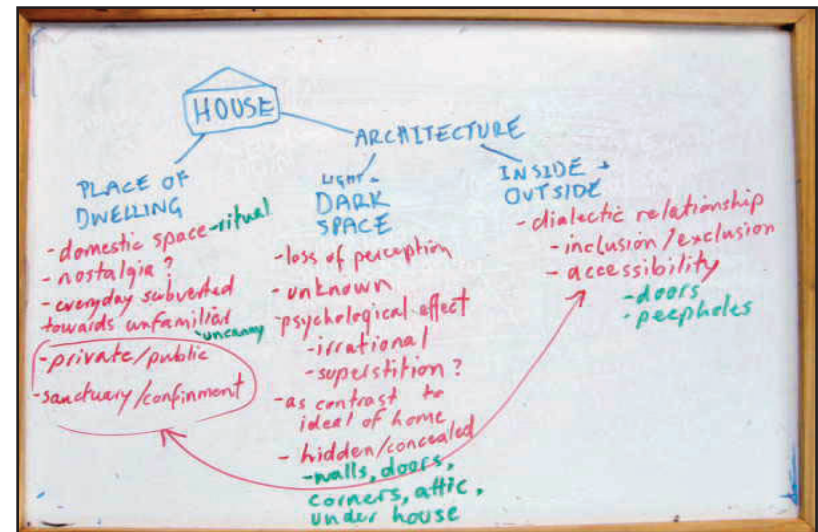 HOUSE
ARCHITECTURE
PLACE OF
DWELLING
- domestic space - ritual
- nostalgia ?
- everyday subverted
towards unfamiliar
- uncanny
- private/public
- sanctuary/confinment
LIGHT -
DARK
SPACE
- loss of perception
- unknown
- psychological effect
- irrational
- superstition ?
- as contrast to
ideal of home
- hidden/concealed
- walls, doors,
corners, attic,
under house
INSIDE +
OUTSIDE
- dialectic relationship
- inclusion/exclusion
- accessibility
- doors
- peepholes